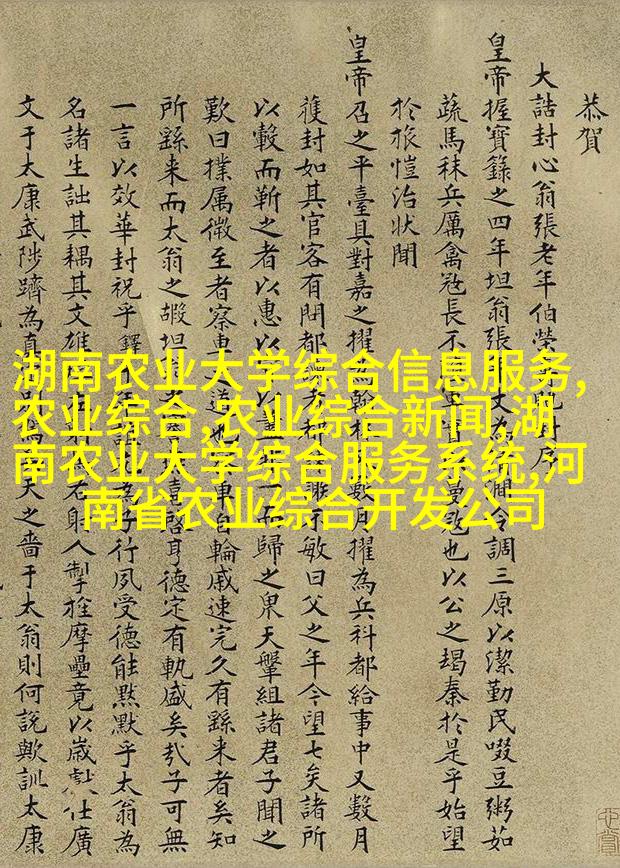 恭賀
大誥封心翁張老年伯榮序
皇帝握寶錄之四年坦翁張文為令調三原以潔勤民啜豆粥如
蔬馬秣兵厲禽冦長不冦也以公之朅秦於是乎始望
於旅愷治狀聞
皇帝召之平臺具對嘉之擢翰數月擢為兵科都給事中又數月
獲封如其官客有都敏曰父之年今望七矣諸所
以轂而靳之者以惠以而歸之果天組諸君子聞之
歎曰樸属微至者察車道也車自輪戚速完久有繇来者矣知
所繇来而太翁之嘏坦竟啓耳德定有軌盛矣㢤子可無
一言以效華封祝乎鐸為子行夙受德能黙默乎太翁為
名諸生詘其耦其文雄石射人摩壘竟以嵗仕廣
文于太康武陟躋為真天之嗇于太翁則何說歟訓太康
湖南农业大学综合信息服务,
农业综合,农业综合新闻,湖
南农业大学综合服务系统,河
南省农业综合开发公司